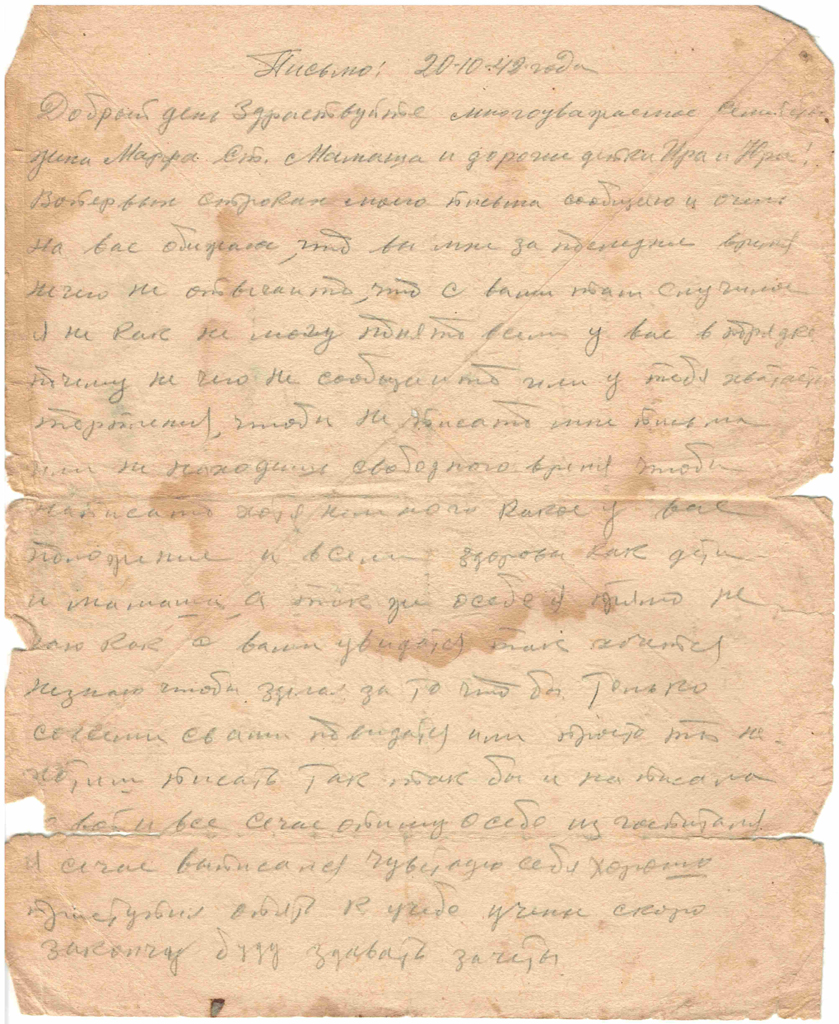 Письмо! 20-10-42 года
Добрый день Здраствуйте многоуважаемое
Марфа Ст. Мамаша и дорогие детки Ира и Юра!
Вопервых строках моего письма сообщаю и очень
на вас обижаюс, что вы мне за последние время
нечего не отвечаите, что с вами там случилос
я не как не могу понять всеми у вас в порядке
почиму не чего не сообщаите или у тебя хватает
терпения, чтобы не писать мне письма
или не находиш свободного время чтобы
написать хотя немного какое у вас
положение и всели здоровы как дети
и мамаша, А так же о себе я прямо не
знаю как с вами увидатся так хочится
незнаю чтобы зделал за то что бы только
совсеми свами повидатся или просто ты не
хотиш писать так так бы и написала
вот и все сечас опишу о себе из госпиталя
я сечас выписался чувствую себя хорошо
приступил опять к учебе учение скоро
закончу буду здавать зачеты